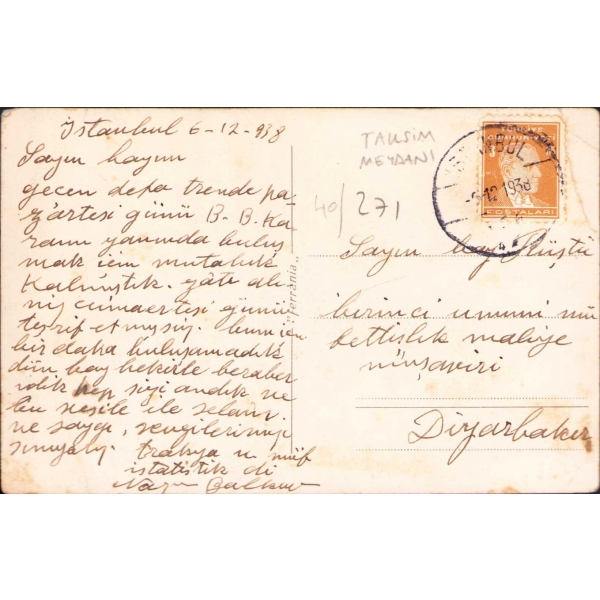 İstanbul 6-12-938
Sayın bayım
geçen defa trende pa
zartesi günü B-B. Ka
ranın yanında buluş
mak için mutabık
Kalmıştık. gâte
cümaertesi günü
teşrif etmişsiniz. bunun için
bir daha buluşamadık
dün bay bekirle beraber
idik hep sizi andık ve
bu vesile ile selâm
ve saygı, sevgilerimizi
sunarız. trakya u. müf
istatistik di
TAKSİM
MEYDANI
40/271
"ferrania"
CUMHURİYETİ
POSTALARI
İSTANBUL
-6-12 1938
Sayın bay Rüştü
birinci umumi mü
fettişlik maliye
müşaviri
Diyarbakır